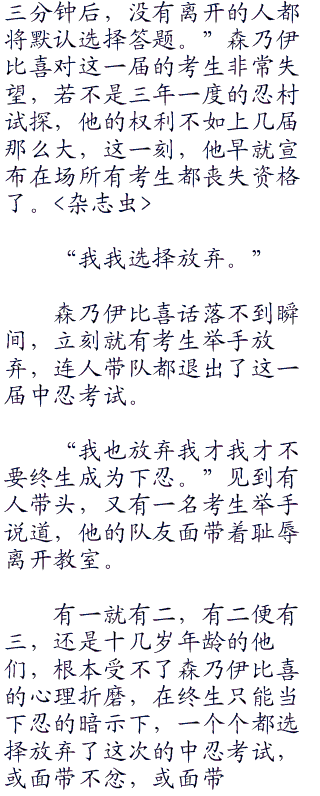 三分钟后，没有离开的人都
将默认选择答题。”森乃伊
比喜对这一届的考生非常失
望，若不是三年一度的忍村
试探，他的权利不如上几届
那么大，这一刻，他早就宣
布在场所有考生都丧失资格
了。<杂志虫>
“我我选择放弃。”
森乃伊比喜话落不到瞬
间，立刻就有考生举手放
弃，连人带队都退出了这一
届中忍考试。
“我也放弃我才我才不
要终生成为下忍。”见到有
人带头，又有一名考生举手
说道，他的队友面带着耻辱
离开教室。
有一就有二，有二便有
三，还是十几岁年龄的他
们，根本受不了森乃伊比喜
的心理折磨，在终生只能当
下忍的暗示下，一个个都选
择放弃了这次的中忍考试，
或面带不忿，或面带